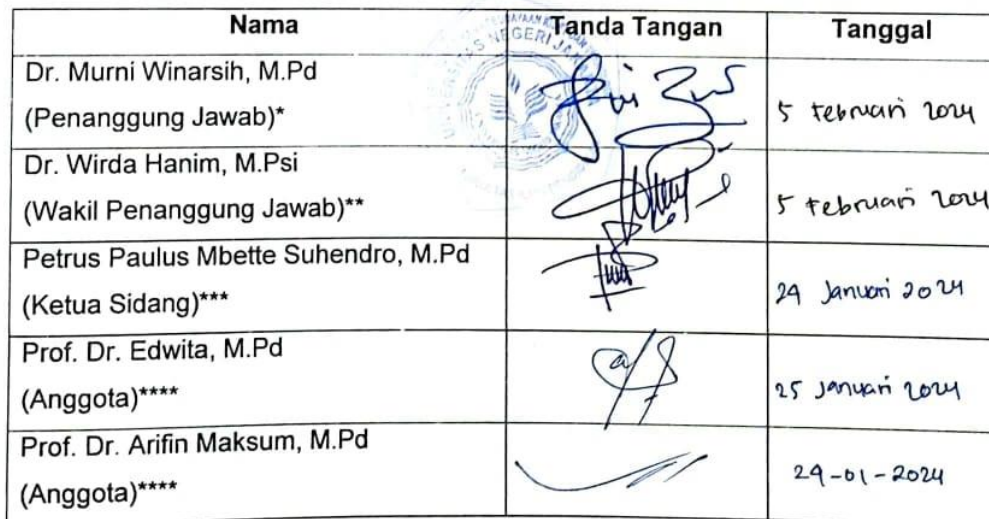 Nama Tanda Tangan Tanggal
Dr. Murni Winarsih, M.Pd
(Penanggung Jawab)* 5 Februari 2024
Dr. Wirda Hanim, M.Psi
(Wakil Penanggung Jawab)** 5 Februari 2024
Petrus Paulus Mbette Suhendro, M.Pd
(Ketua Sidang)*** 24 Januari 2024
Prof. Dr. Edwita, M.Pd
(Anggota)**** 25 Januari 2024
Prof. Dr. Arifin Maksum, M.Pd
(Anggota)**** 24-01-2024